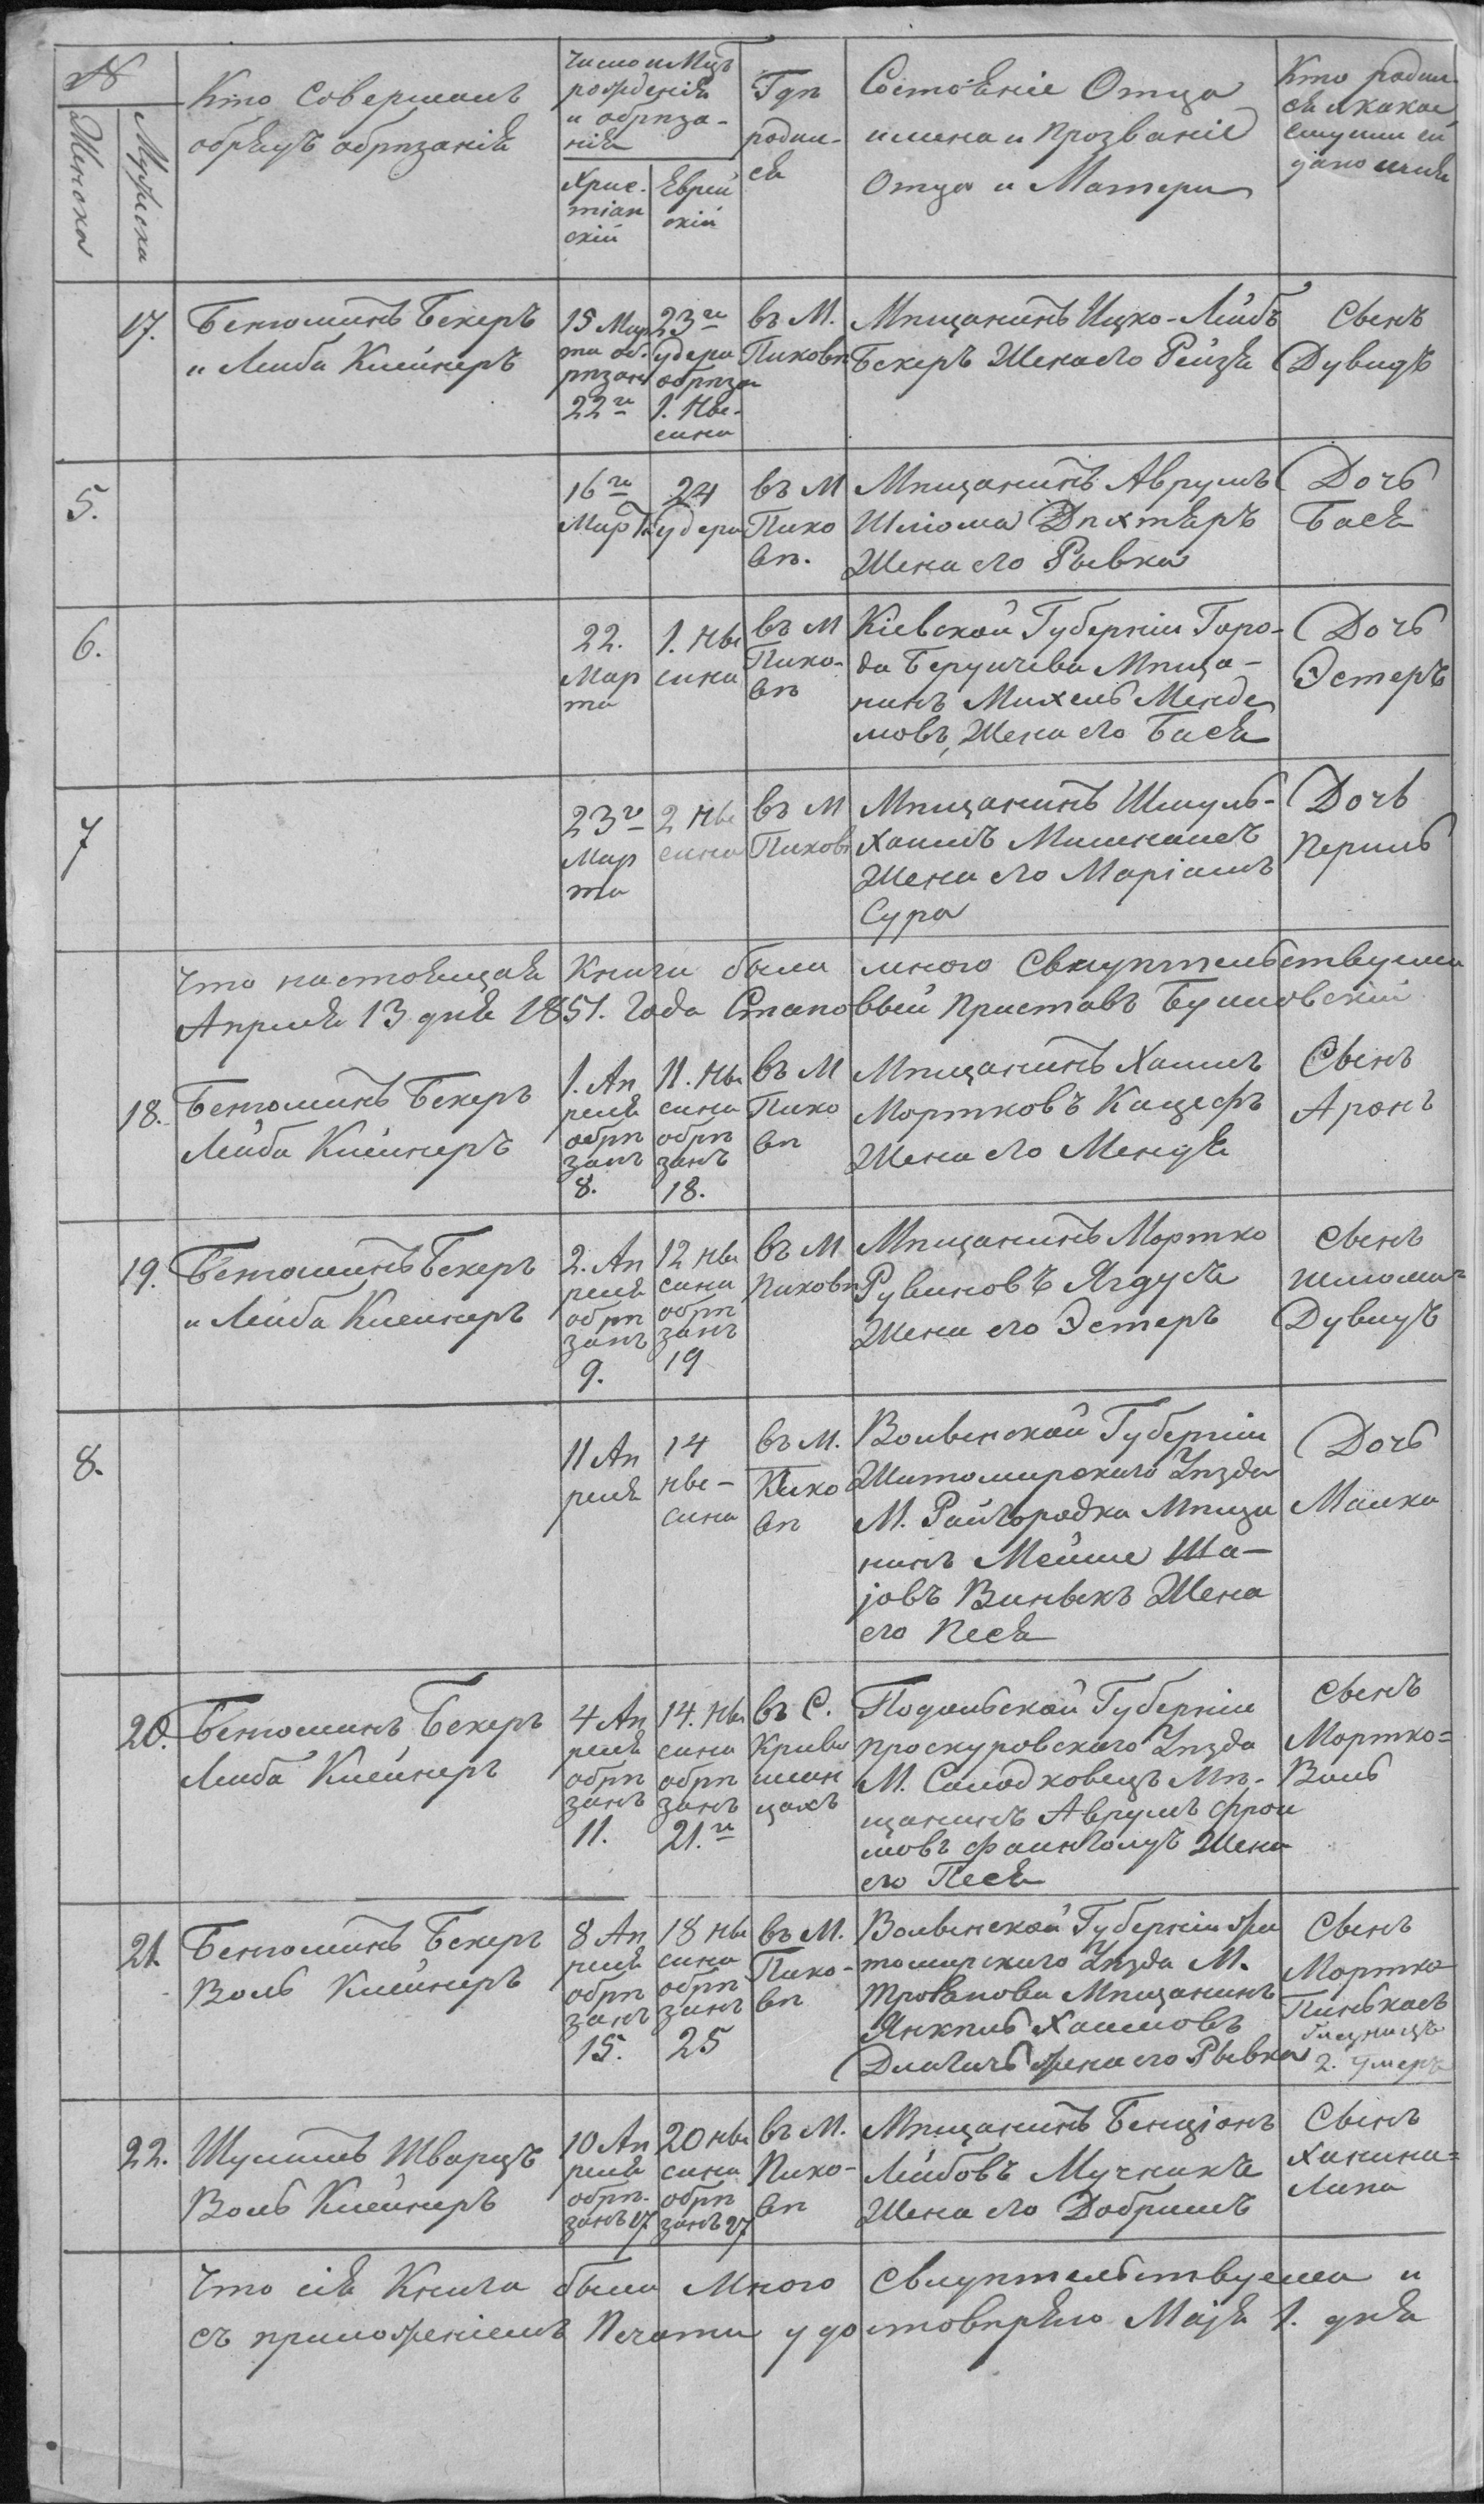 №
Женска
Мужеска
Кто Совершалъ
обрядъ обрѣзанія
Число и Мцъ
рожденія
и обрѣза-
нія
Хрис-
тіан
скій
Еврей
скій
Гдѣ
родил-
ся
Состояніе Отца
имена и прозваніе
Отца и Матери
Кто родил
ся и какое
ему или ей
дано имя
17.
Бенюминъ Бекеръ
и Лейба Клейнеръ
15 Мар
та об-
рѣзанъ
22го
23го
Удера
обрѣзан
1. Нве-
сина
въ М.
Пиковѣ
Мѣщанинъ Ицко-Лейбъ
Бекеръ Жена его Рейзя
Сынъ
Дувидъ
5.
16го
Марта
24
Удера
въ М
Пико
вѣ.
Мѣщанинъ Аврумъ
Шліома Дѣхтяръ
Жена его Рывка
Дочь
Бася
6.
22.
Мар
та
1. Нве
сина
въ М
Пико-
вѣ
Кіевской Губерніи Горо-
да Бердичева Мѣща-
нинъ Михель Менде
лювъ, Жена его Бася
Дочь
Эстеръ
7
23го
Мар
та
2 Нве
сина
въ М
Пиковѣ
Мѣщанинъ Шмуль-
Хаимъ
Жена его Маріамъ
Сура
Дочь
Перль
что настоящая Книга была мною Свидѣтельствуема
Апреля 13 дня 1851. Года Становый Приставъ
18.
Бенюминъ Бекеръ
Лейба Клейнеръ
1. Ап
реля
обрѣ
занъ
8.
11. Нве
сина
обрѣ
занъ
18.
въ М
Пико
вѣ
Мѣщанинъ Хаимъ
Мортковъ Кацефъ
Жена его Мендя
Сынъ
Аронъ
19.
Бенюминъ Бекеръ
и Лейба Клейнеръ
2. Ап
реля
обрѣ
занъ
9.
12 Нве
сина
обрѣ
занъ
19
въ М
Пиковѣ
Мѣщанинъ Мортко
Рувиновъ Ягдусъ
Жена его Эстеръ
Сынъ
Шлиома-
Дувидъ
8.
11 Ап
реля
14
нве-
сина
въ М.
Пико
вѣ
Волынской Губерніи
Житомирскаго Уѣзда
М. Райгородка Мѣща
нинъ Мейше Ша-
iовъ Жена
его Песя
Дочь
Малка
20.
Бенюминъ Бекеръ
Лейба Клейнеръ
4 Ап
реля
обрѣ
занъ
11.
14. Нве
сина
обрѣ
занъ
21.го
въ С.
Криво
шин
цахъ
Подольской Губерніи
Проскуровскаго Уѣзда
М. Солодковецъ Мѣ-
щанинъ Аврумъ Фрои
мовъ Файнголдъ Жена
его Песя
Сынъ
Мортко=
Воль
21.
Бенюминъ Бекеръ
Воль Клейнеръ
8 Ап
реля
обрѣ
занъ
15.
18 Нве
сина
обрѣ
занъ
25
въ М.
Пико-
вѣ
Волынской Губерніи Жи
томирскаго Уѣзда М.
Троянова Мѣщанинъ
Янкель Хаимовъ
Жена его Рывка
Сынъ
Мортко
Пинькасъ
2. Умеръ
22.
Шулимъ Шварцъ
Воль Клейнеръ
10 Ап
реля
обрѣ-
занъ 17
20 нве
сина
обрѣ
занъ 27
въ М.
Пико-
вѣ
Мѣщанинъ Бенціонъ
Лейбовъ Мучникъ
Жена его Добришъ
Сынъ
Ханина=
Липа
Что сія Книга была Мною Свидѣтельствуема и
съ приложеніемъ Печати удостовѣряю Маія 1. дня